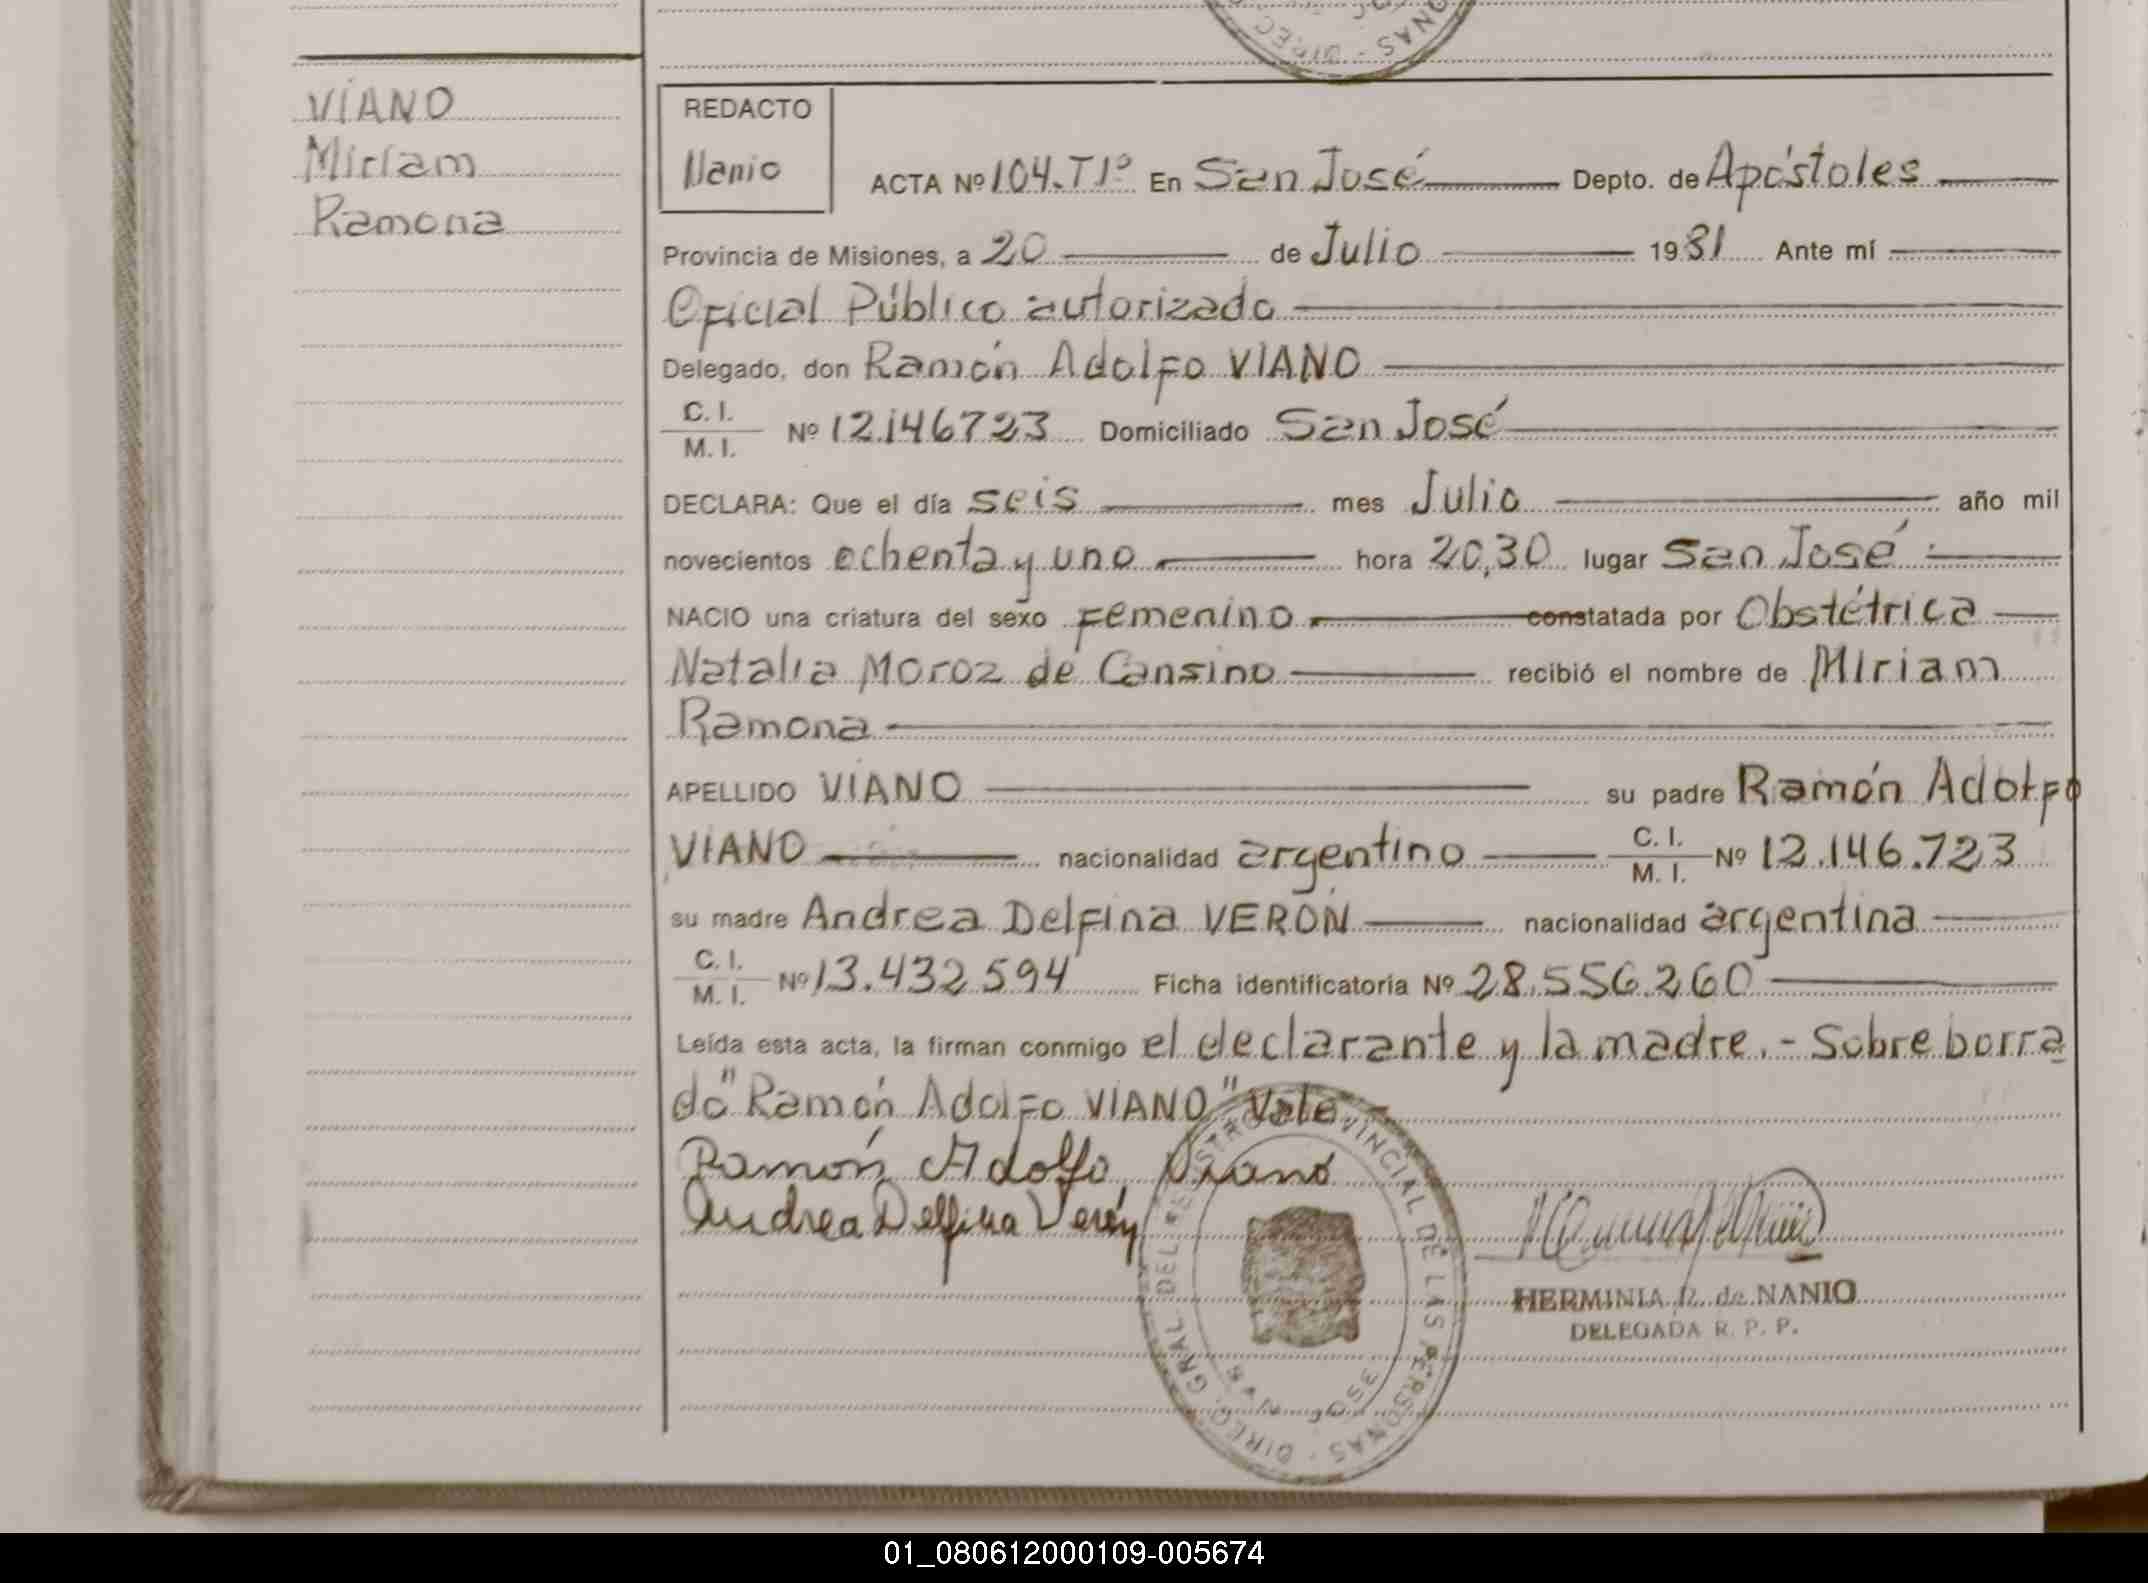 VIANO
Miriam
Ramona
REDACTO
Nanio
ACTA Nº 104.T1º En San José Depto. de Apóstoles
Provincia de Misiones, a 20 de Julio 1981 Ante mí
Oficial Público autorizado
Delegado, don Ramón Adolfo VIANO
C. I.
M. I. Nº 12.146723 Domiciliado San José
DECLARA: Que el día seis mes Julio año mil
novecientos ochenta y uno hora 20,30 lugar San José
NACIO una criatura del sexo Femenino constatada por Obstétrica
Natalia Moroz de Cansino recibió el nombre de Miriam
Ramona
APELLIDO VIANO su padre Ramón Adolfo
VIANO nacionalidad argentino C. I. M. I. Nº 12.146.723
su madre Andrea Delfina VERÓN nacionalidad argentina
C. I.
M. I. Nº 13.432.594 Ficha identificatoria Nº 28.556.260
Leída esta acta, la firman conmigo el declarante y la madre.- Sobre borra
do "Ramón Adolfo VIANO" Vale-
Ramón Adolfo Viano
Andrea Delfina Verón
DIREC. GRAL. DEL REGISTRO PROVINCIAL DE LAS PERSONAS
SAN JOSE
HERMINIA R. de NANIO
DELEGADA R. P. P.
01_080612000109-005674